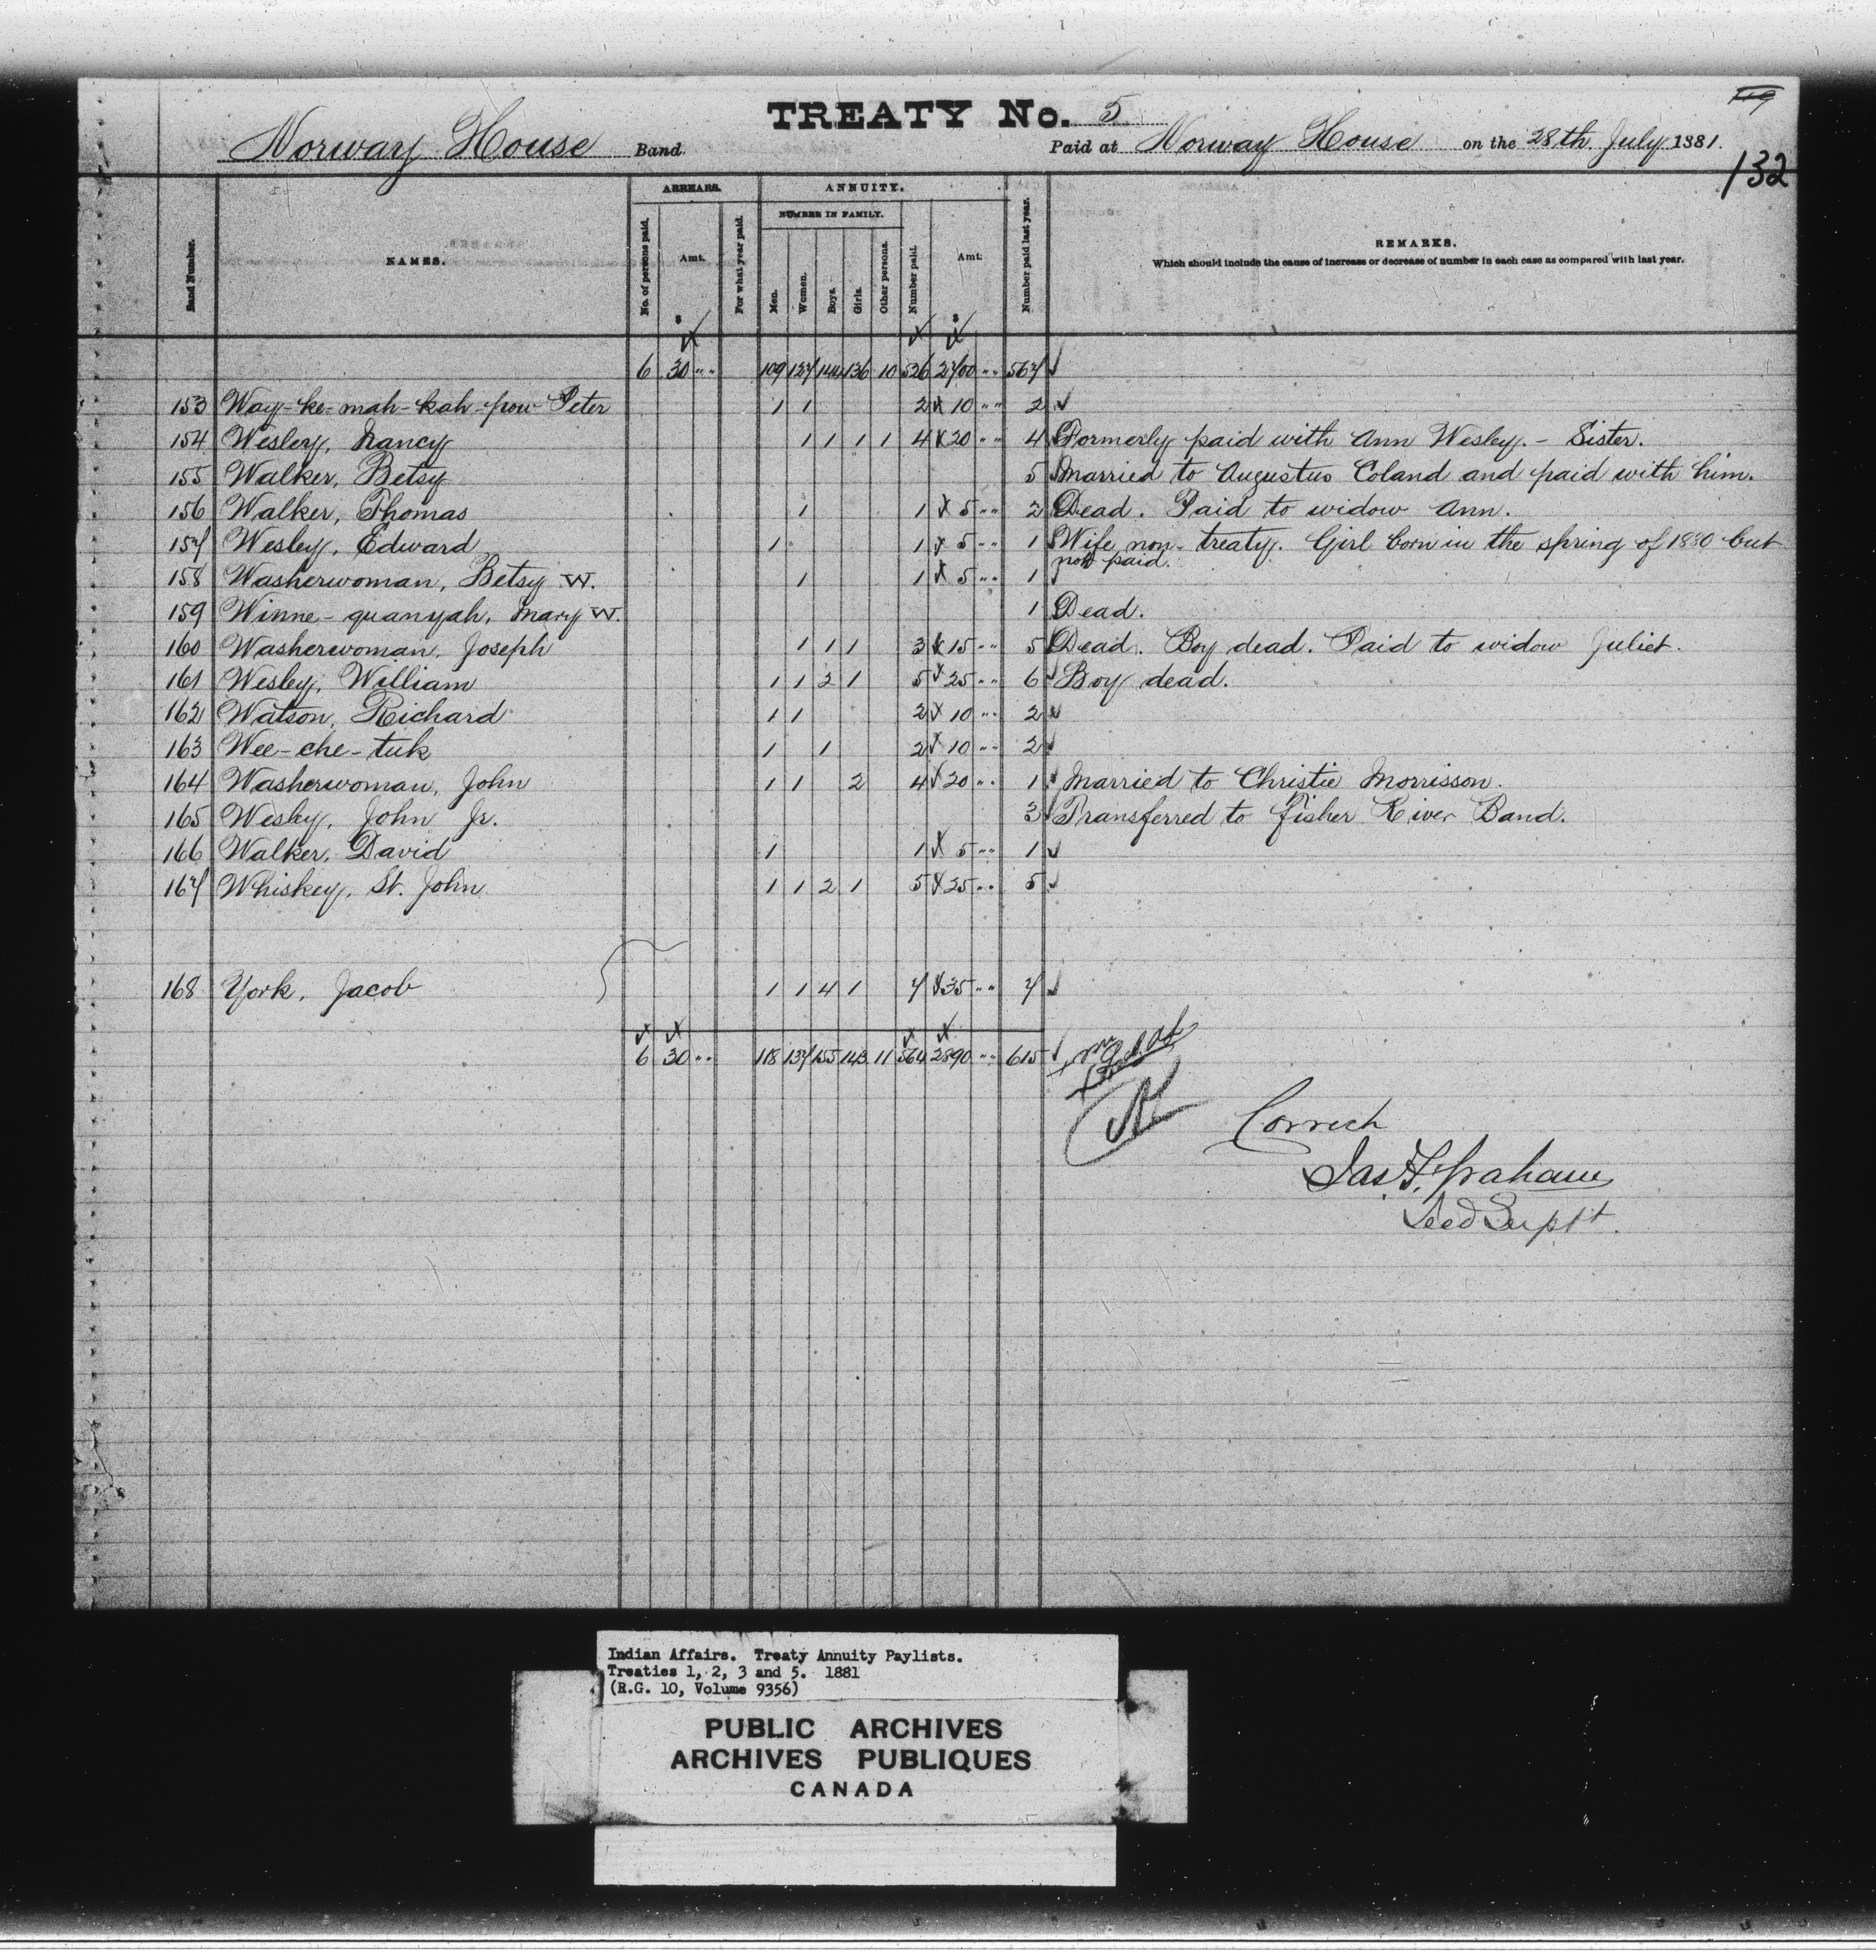 TREATY No. 5
119
Norway House Band.
Paid at Norway House on the 28th July 1881.
132
Band Number.
NAMES.
ARREARS.
No. of persons paid.
Amt.
$
For what year paid.
ANNUITY.
NUMBER IN FAMILY.
Men.
Women.
Boys.
Girls.
Other persons.
Number paid.
Amt.
$
Number paid last year.
REMARKS.
Which should include the cause of increase or decrease of number in each case as compared with last year.
6 30 " " 109 127 144 136 10 526 2700 " " 567
153 Way-ke-mah-kah-pow Peter 1 1 2 10 " " 2
154 Wesley, Nancy 1 1 1 1 4 20 " " 4 Formerly paid with Ann Wesley. - Sister.
155 Walker, Betsy 5 Married to Augustus Coland and paid with him.
156 Walker, Thomas 1 1 5 " " 2 Dead. Paid to widow Ann.
157 Wesley, Edward 1 1 5 " " 1 Wife non-treaty. Girl born in the spring of 1880 but
not paid.
158 Washerwoman, Betsy W. 1 1 5 " " 1
159 Winne-quanyah, Mary W. 1 Dead.
160 Washerwoman, Joseph 1 1 1 3 15 " " 5 Dead. Boy dead. Paid to widow Juliet.
161 Wesley, William 1 1 2 1 5 25 " " 6 Boy dead.
162 Watson, Richard 1 1 2 10 " " 2
163 Wee-che-tuk 1 1 2 10 " " 2
164 Washerwoman, John 1 1 2 4 20 " " 1 Married to Christie Morrisson.
165 Wesley, John Jr. 3 Transferred to Fisher River Band.
166 Walker, David 1 1 5 " " 1
167 Whiskey, St. John 1 1 2 1 5 25 " " 5
168 York, Jacob 1 1 4 1 7 35 " " 7
6 30 " " 118 137 155 143 11 564 2890 " " 615
Correct
Jas. F. Graham
Supt.
Indian Affairs. Treaty Annuity Paylists.
Treaties 1, 2, 3 and 5. 1881
(R.G. 10, Volume 9356)
PUBLIC ARCHIVES
ARCHIVES PUBLIQUES
CANADA